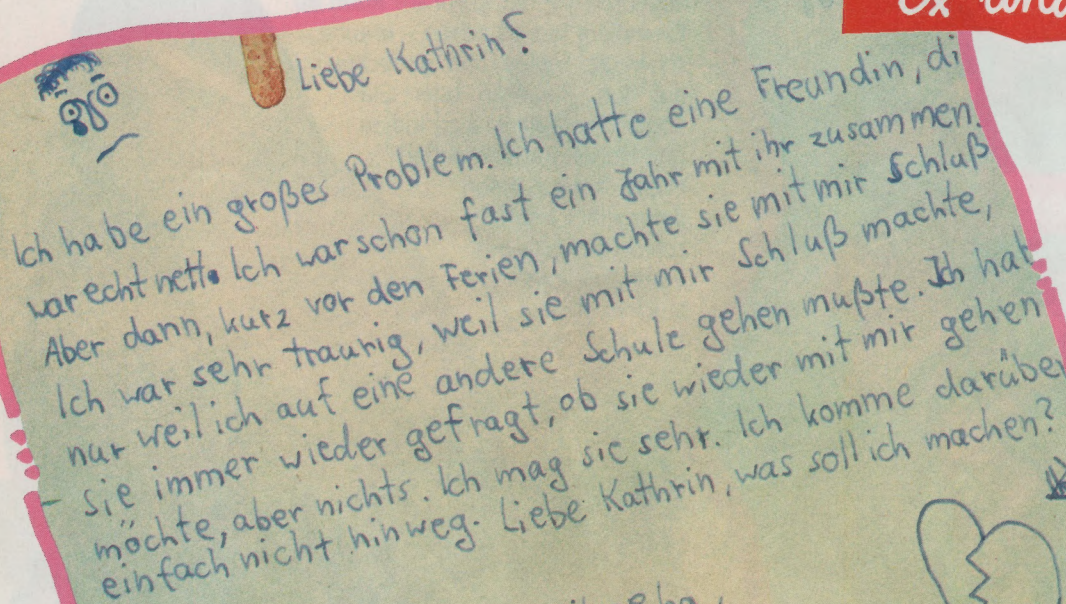 Liebe Kathrin!
Ich habe ein großes Problem. Ich hatte eine Freundin, di
war echt nett. Ich war schon fast ein Jahr mit ihr zusammen.
Aber dann, kurz vor den Ferien, machte sie mit mir Schluß
Ich war sehr traurig, weil sie mit mir Schluß machte,
nur weil ich auf eine andere Schule gehen mußte. Ich hat
sie immer wieder gefragt, ob sie wieder mit mir gehen
möchte, aber nichts. Ich mag sie sehr. Ich komme darübe
einfach nicht hinweg. Liebe Kathrin, was soll ich machen?